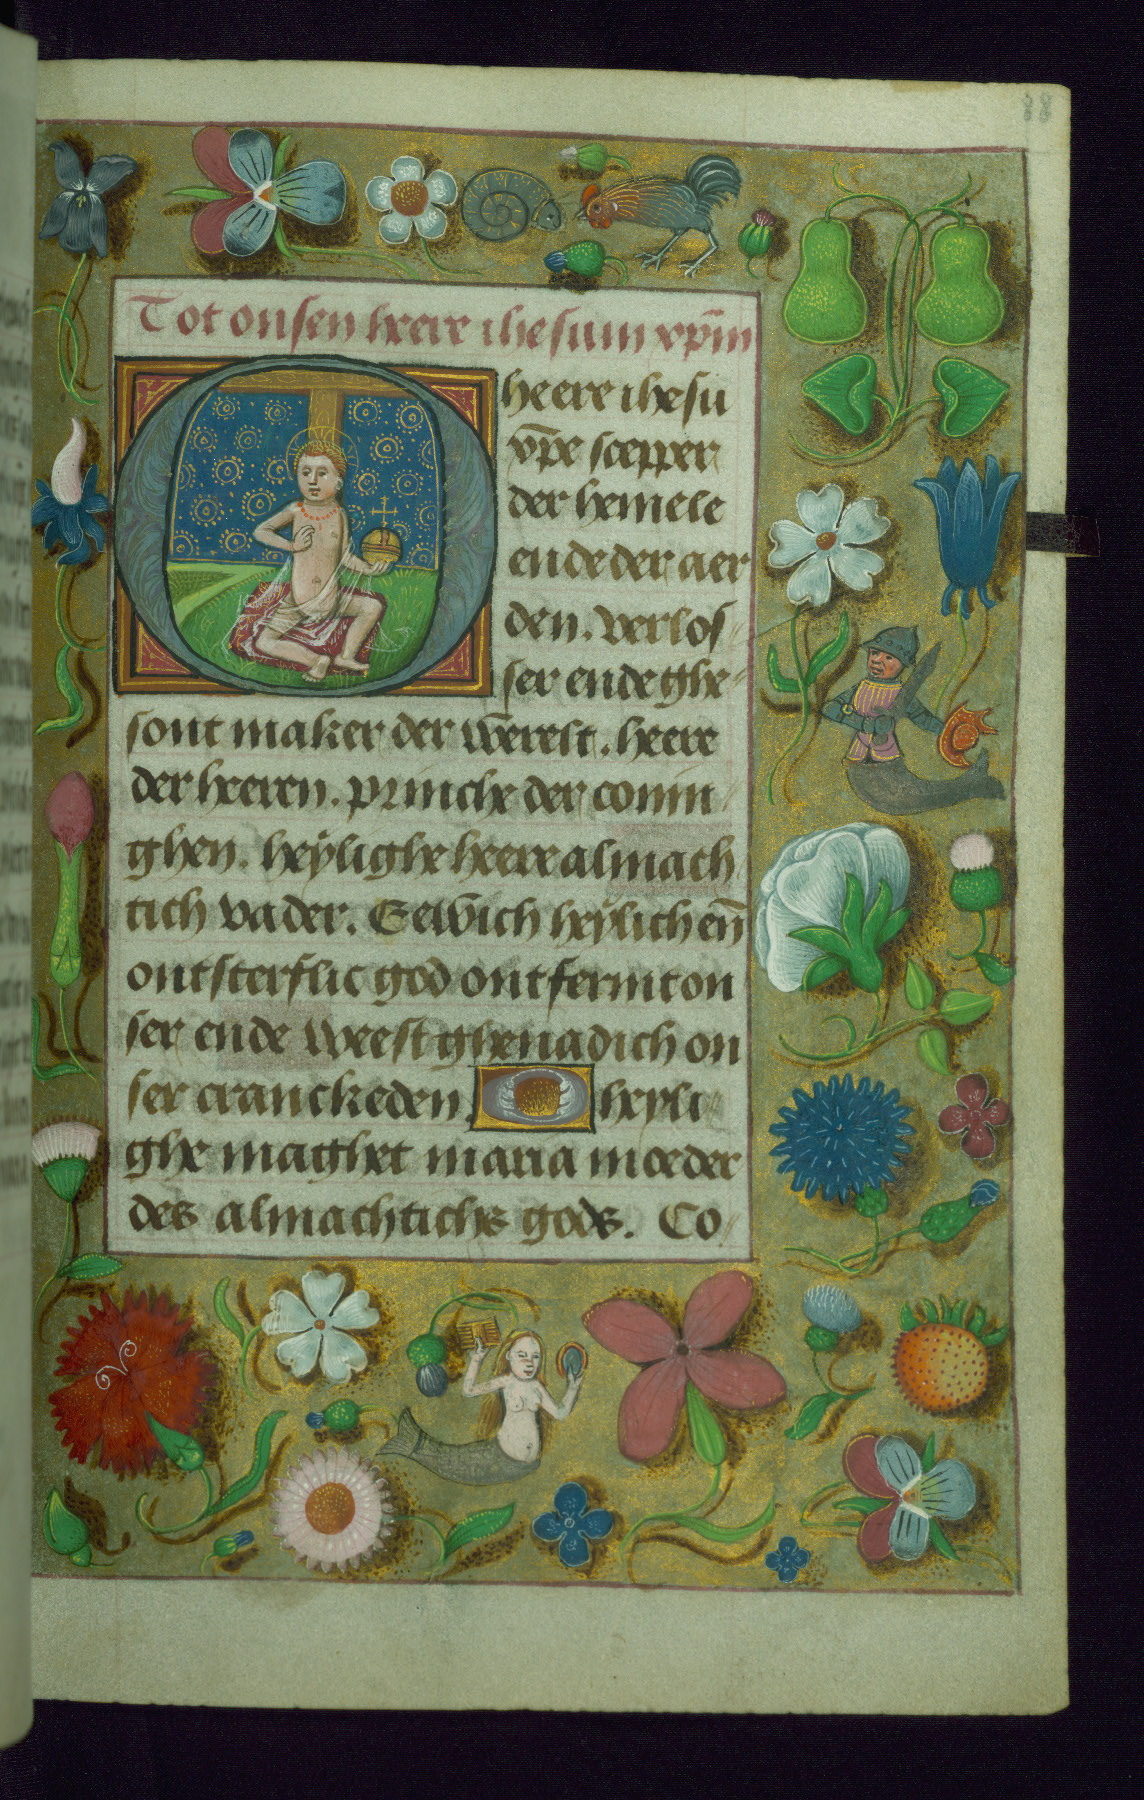 Tot onsen heere ihesum xp̄m
O heere ihesu
xp̄e scepper
der hemele
ende der aer
den. verlos
ser ende ghe
sont maker der werelt. heere
der heeren. prinche der conin
ghen. heylighe heere almach
tich vader. Eewich heylich en̄
ontsterflic god ontfermt on
ser ende weest ghenadich on
ser cranckeden O heyli
ghe maghet maria moeder
des almachtichs gods. Co